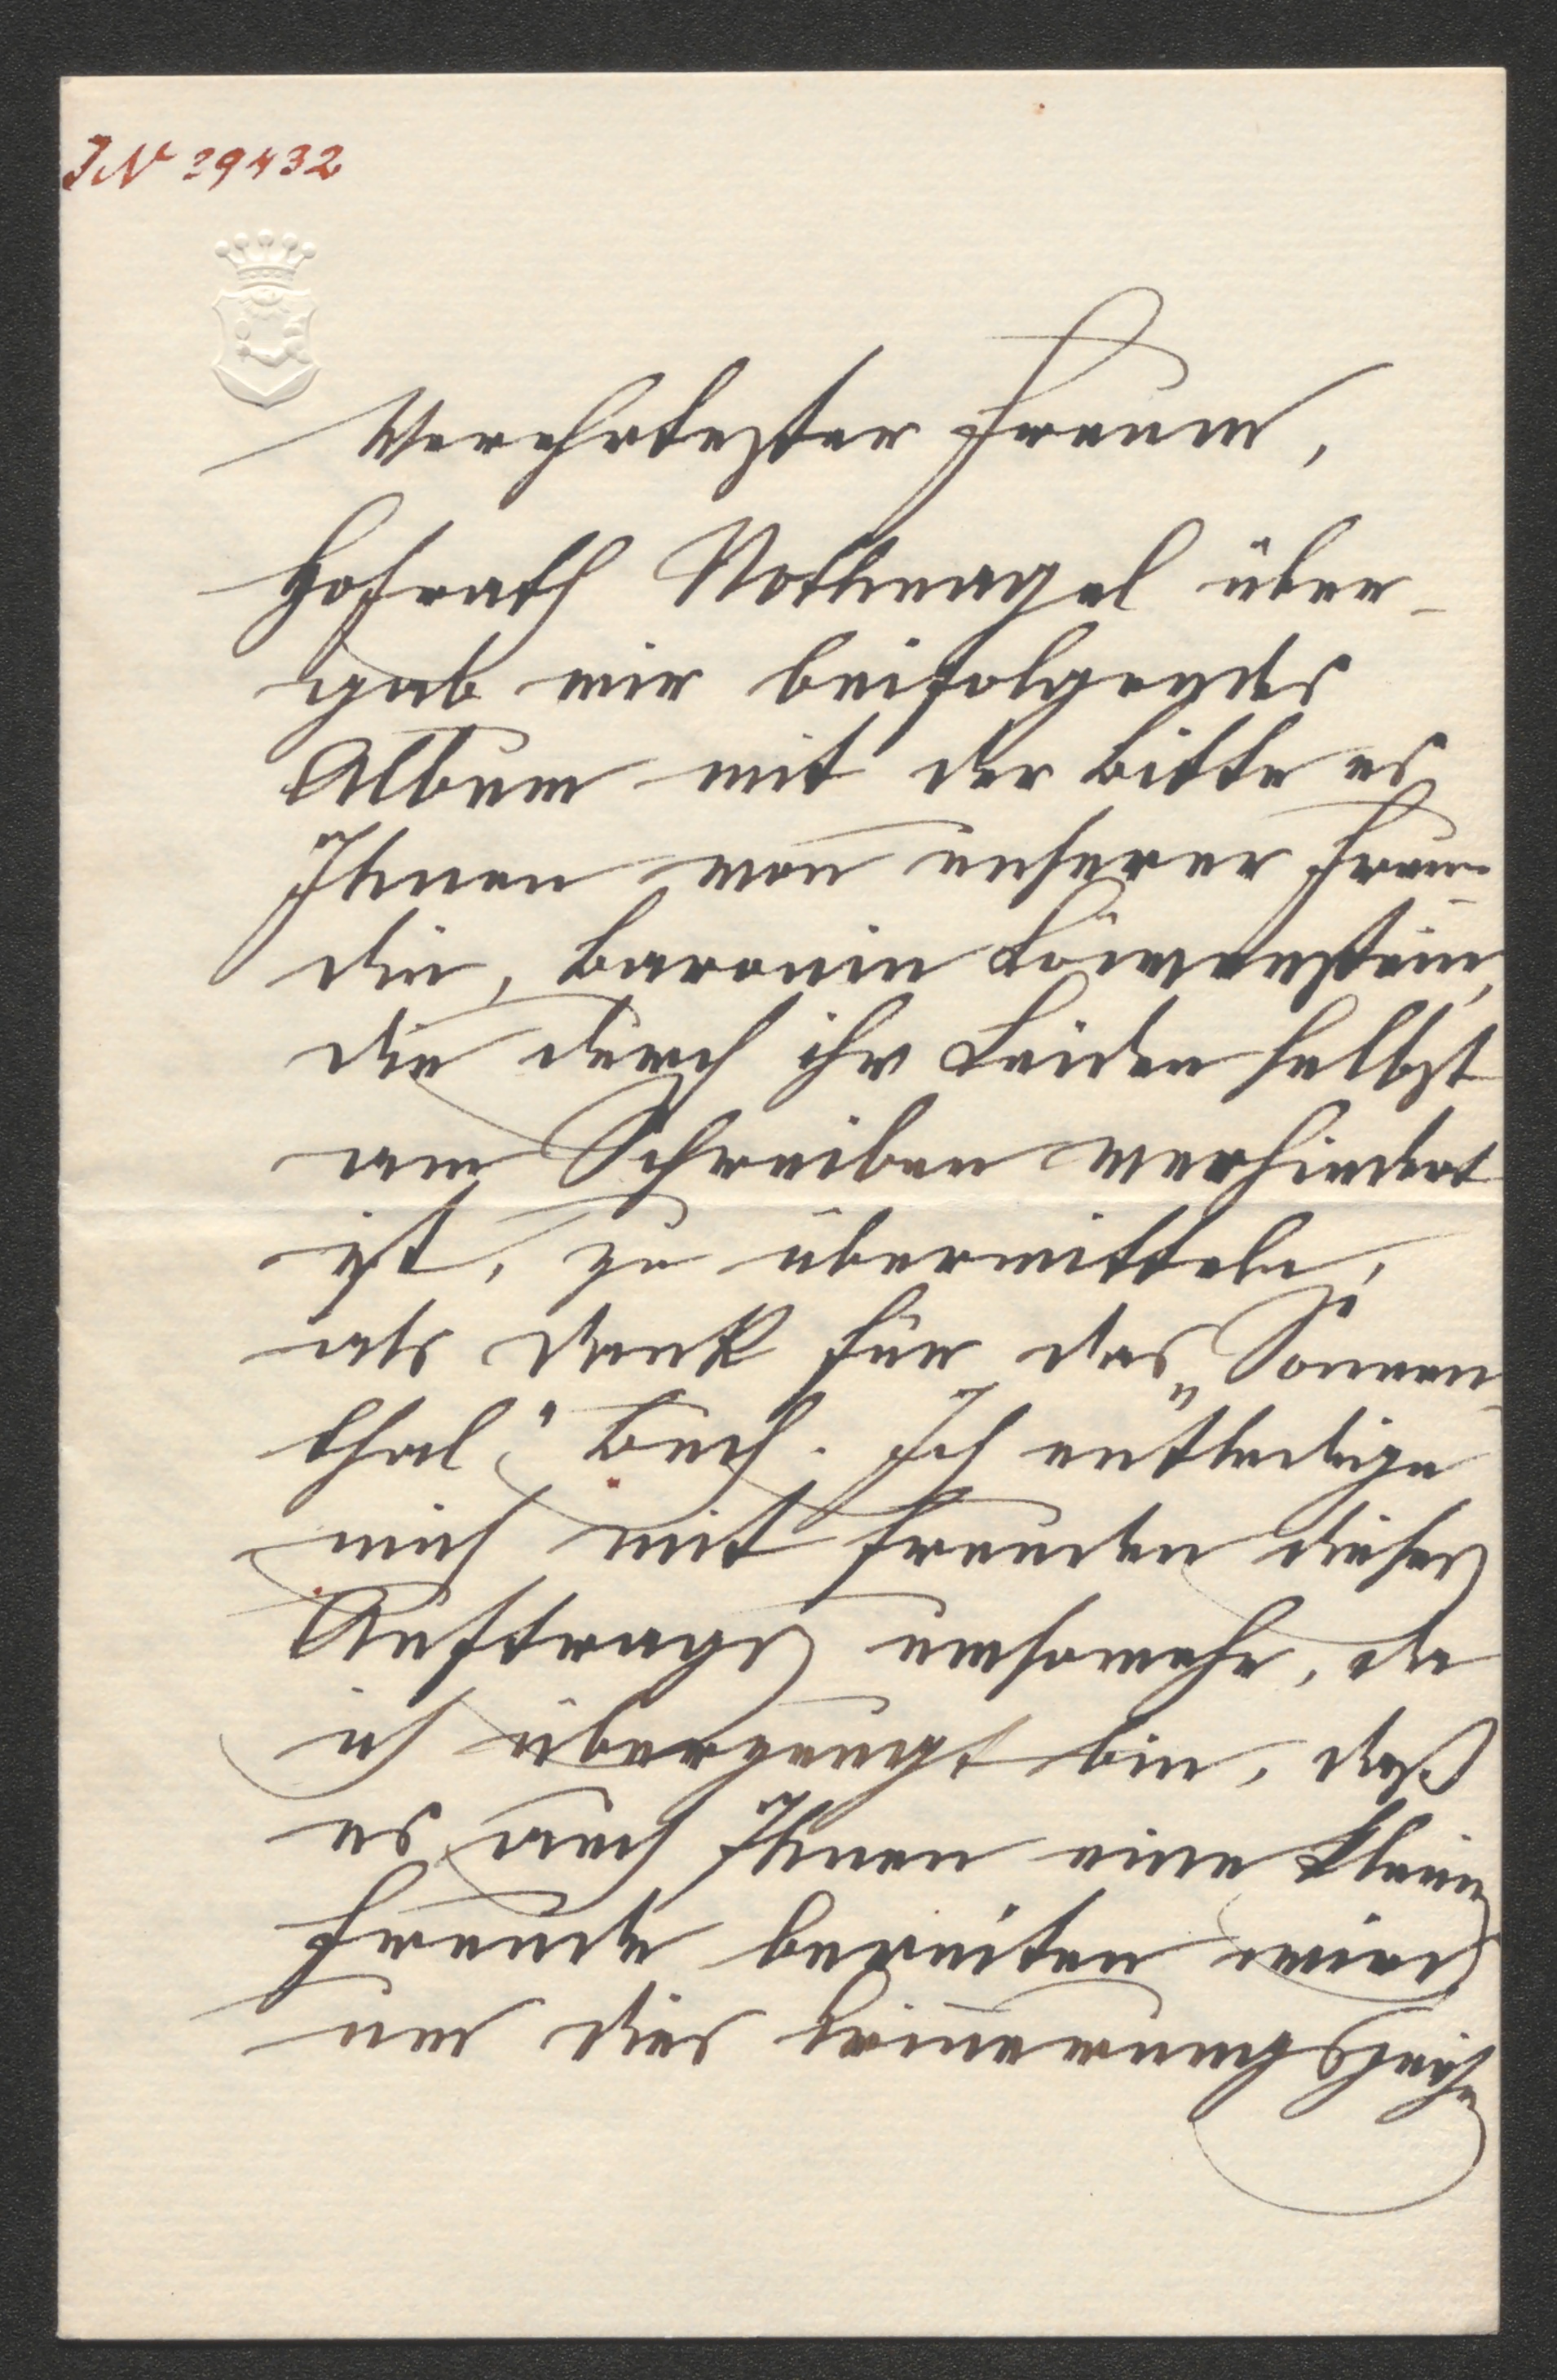 IN 29432
Verehrtester Freund,
Hofrath Nothnagel über-
gab mir beifolgendes
Album mit der Bitte es
Ihnen von unserer Freun-
din, Baronin Löwenstein,
die durch ihr Leiden selbst
am Schreiben verhindert
ist, zu übermitteln,
als Dank für das „Sonnen-
thal“ Buch. Ich entledige
mich mit Freuden dieses
Auftrages umsomehr, da
ich überzeugt bin, daß
es auch Ihnen eine kleine
Freude bereiten wird
um dies